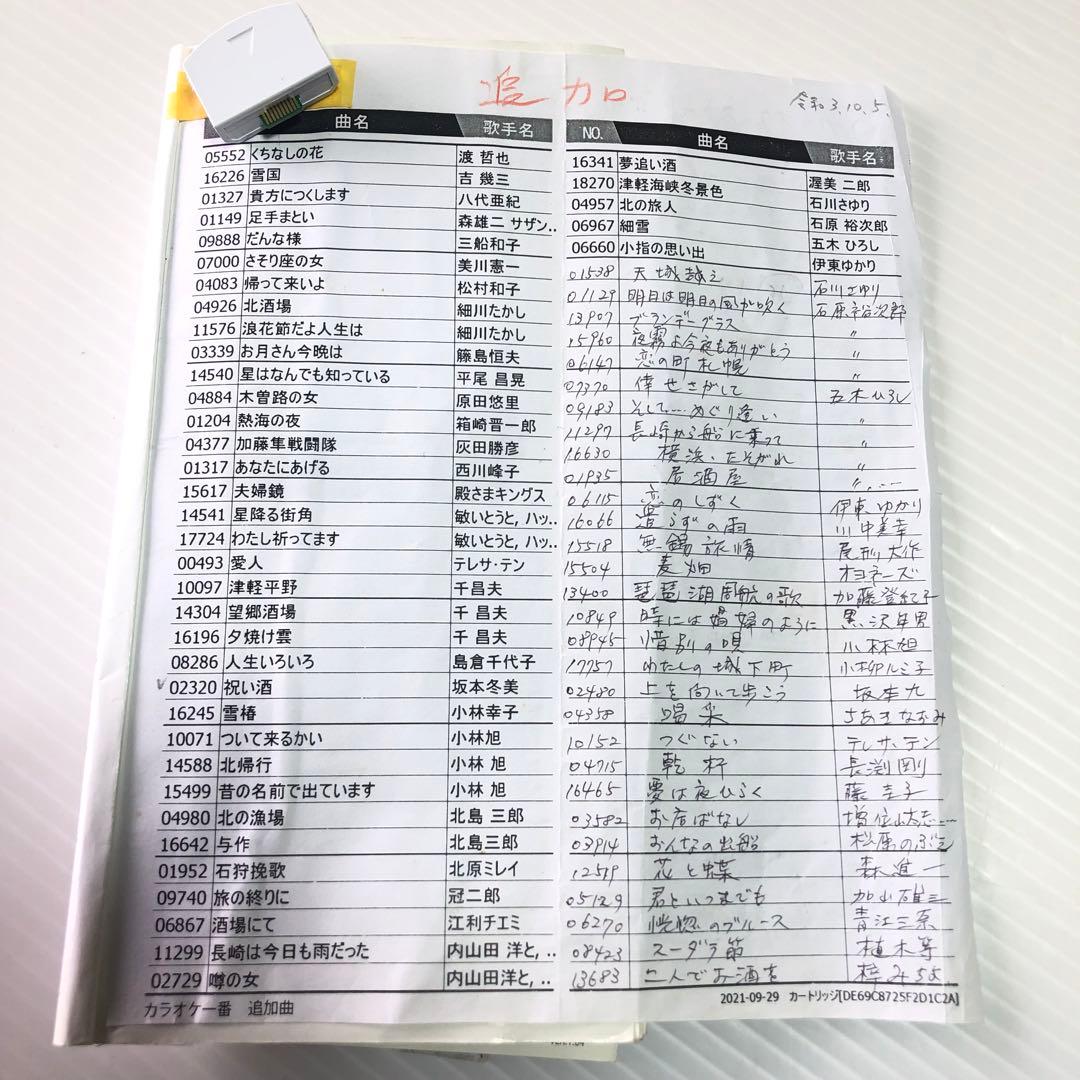 追加
令和3.10.5.
曲名 歌手名
05552 くちなしの花 渡 哲也
16226 雪国 吉 幾三
01327 貴方につくします 八代亜紀
01149 足手まとい 森雄二 サザン..
09888 だんな様 三船和子
07000 さそり座の女 美川憲一
04083 帰って来いよ 松村和子
04926 北酒場 細川たかし
11576 浪花節だよ人生は 細川たかし
03339 お月さん今晩は 籐島恒夫
14540 星はなんでも知っている 平尾 昌晃
04884 木曽路の女 原田悠里
01204 熱海の夜 箱崎晋一郎
04377 加藤隼戦闘隊 灰田勝彦
01317 あなたにあげる 西川峰子
15617 夫婦鏡 殿さまキングス
14541 星降る街角 敏いとうと, ハッ..
17724 わたし祈ってます 敏いとうと, ハッ..
00493 愛人 テレサ・テン
10097 津軽平野 千昌夫
14304 望郷酒場 千 昌夫
16196 夕焼け雲 千 昌夫
08286 人生いろいろ 島倉千代子
02320 祝い酒 坂本冬美
16245 雪椿 小林幸子
10071 ついて来るかい 小林旭
14588 北帰行 小林 旭
15499 昔の名前で出ています 小林 旭
04980 北の漁場 北島 三郎
16642 与作 北島三郎
01952 石狩挽歌 北原ミレイ
09740 旅の終りに 冠二郎
06867 酒場にて 江利チエミ
11299 長崎は今日も雨だった 内山田 洋と, ..
02729 噂の女 内山田洋と, ..
カラオケ一番 追加曲
NO. 曲名 歌手名
16341 夢追い酒 渥美 二郎
18270 津軽海峡冬景色 石川さゆり
04957 北の旅人 石原 裕次郎
06967 細雪 五木 ひろし
06660 小指の思い出 伊東ゆかり
01538 天城越え 石川さゆり
01129 明日は明日の風が吹く 石原裕次郎
13907 ブランデーグラス 〃
15960 夜霧よ今夜もありがとう 〃
06147 恋の町札幌 〃
07370 倖せさがして 五木ひろし
09183 そして…めぐり逢い 〃
11297 長崎から船に乗って 〃
16630 横浜・たそがれ 〃
01935 居酒屋 〃
06115 恋のしずく 伊東ゆかり
16066 遣らずの雨 川中美幸
15518 無錫旅情 尾形大作
15504 麦畑 オヨネーズ
13400 琵琶湖周航の歌 加藤登紀子
10849 時には娼婦のように 黒沢年男
08945 惜別の唄 小林旭
17757 わたしの城下町 小柳ルミ子
02480 上を向いて歩こう 坂本九
04358 喝采 ちあきなおみ
10152 つぐない テレサ・テン
04715 乾杯 長渕剛
16465 夢は夜ひらく 藤圭子
03582 お店ばなし 増位山太志…
03914 おんなの出船 松原のぶえ
12519 花と蝶 森進一
05129 君といつまでも 加山雄三
06270 恍惚のブルース 青江三奈
08423 スーダラ節 植木等
13683 二人でお酒を 梓みちよ
2021-09-29 カートリッジ[DE69C8725F2D1C2A]